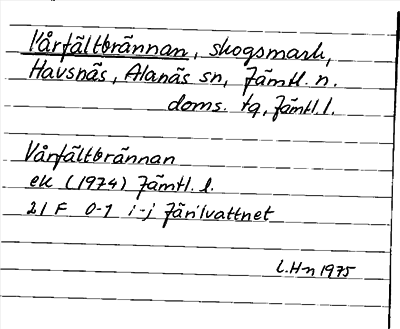 Vårfältbrännan, skogsmark,
Havsnäs, Alanäs sn, Jämtl. n.
doms. tg, Jämtl. l.
Vårfältbrännan
ek (1974) Jämtl. l.
21 F 0-1 i-j Järilvattnet
L.Hn 1975